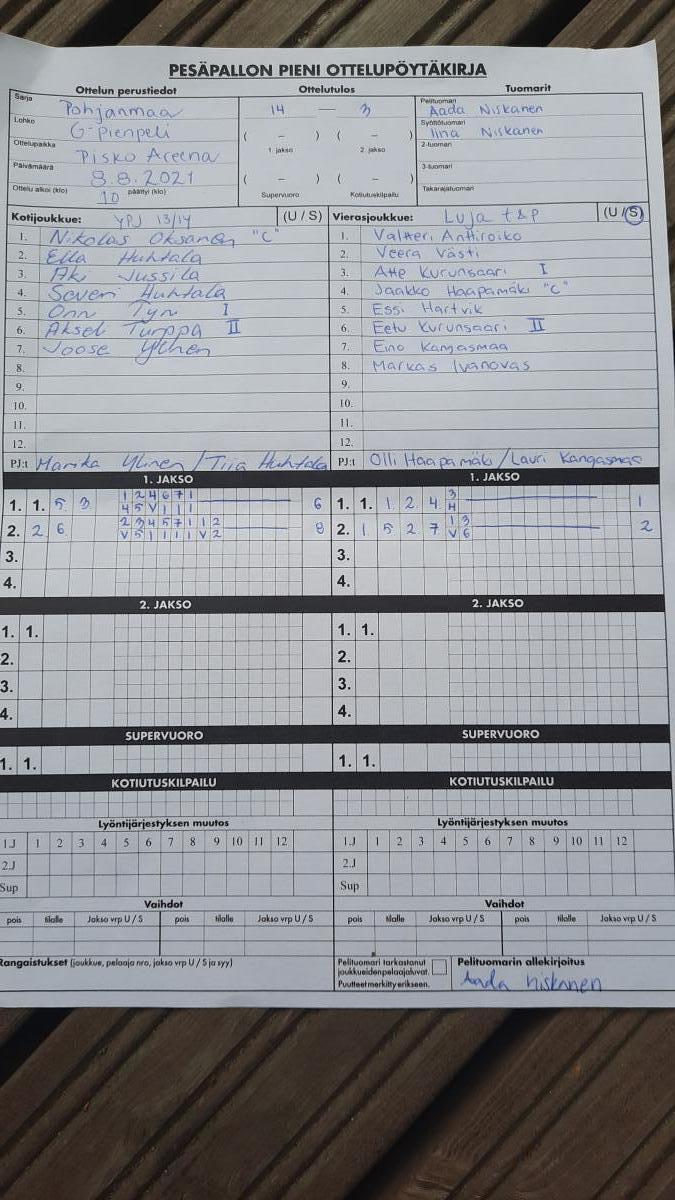 PESÄPALLON PIENI OTTELUPÖYTÄKIRJA
Ottelun perustiedot Ottelutulos Tuomarit
Sarja Pohjanmaa 14 — 3 Pelituomari Aada Niskanen
Lohko G-Pienpeli ( – ) ( – ) Syöttötuomari Iina Niskanen
Ottelupaikka Pisko Areena 1. jakso 2. jakso 2-tuomari
Päivämäärä 8.8.2021 ( – ) ( – ) 3-tuomari
Ottelu alkoi (klo) 10 päättyi (klo) Supervuoro Kotiutuskilpailu Takarajatuomari
Kotijoukkue: YPJ 13/14 (U / S) Vierasjoukkue: Luja t&p (U / S)
1. Nikolas Oksanen "C" 1. Valtteri Anttiroiko
2. Ella Huhtala 2. Veera Västi
3. Aki Jussila 3. Atte Kurunsaari I
4. Severi Huhtala 4. Jaakko Haapamäki "C"
5. Onni Tyni I 5. Essi Hartvik
6. Akseli Turppa II 6. Eetu Kurunsaari II
7. Joose Ylinen 7. Eino Kangasmaa
8. 8. Markas Ivanovas
9. 9.
10. 10.
11. 11.
12. 12.
PJ:t Marika Ylinen / Tiia Huhtala PJ:t Olli Haapamäki / Lauri Kangasmaa
1. JAKSO 1. JAKSO
1 2 4 6 7 1 3
1. 1. 5 3 4 5 V 1 1 1 6 1. 1. 1 2 4 H 1
2 3 4 5 7 1 1 2 1 3
2. 2 6 V 5 1 1 1 1 V 2 8 2. 1 5 2 7 V 6 2
3. 3.
4. 4.
2. JAKSO 2. JAKSO
1. 1. 1. 1.
2. 2.
3. 3.
4. 4.
SUPERVUORO SUPERVUORO
1. 1. 1. 1.
KOTIUTUSKILPAILU KOTIUTUSKILPAILU
Lyöntijärjestyksen muutos Lyöntijärjestyksen muutos
1.J 1 2 3 4 5 6 7 8 9 10 11 12 1.J 1 2 3 4 5 6 7 8 9 10 11 12
2.J 2.J
Sup Sup
Vaihdot Vaihdot
pois tilalle Jakso vrp U / S pois tilalle Jakso vrp U / S pois tilalle Jakso vrp U / S pois tilalle Jakso vrp U / S
Rangaistukset (joukkue, pelaaja nro, jakso vrp U / S ja syy) Pelituomari tarkastanut Pelituomarin allekirjoitus
joukkueiden pelaajaluvat.
Puutteet merkitty erikseen. Aada Niskanen